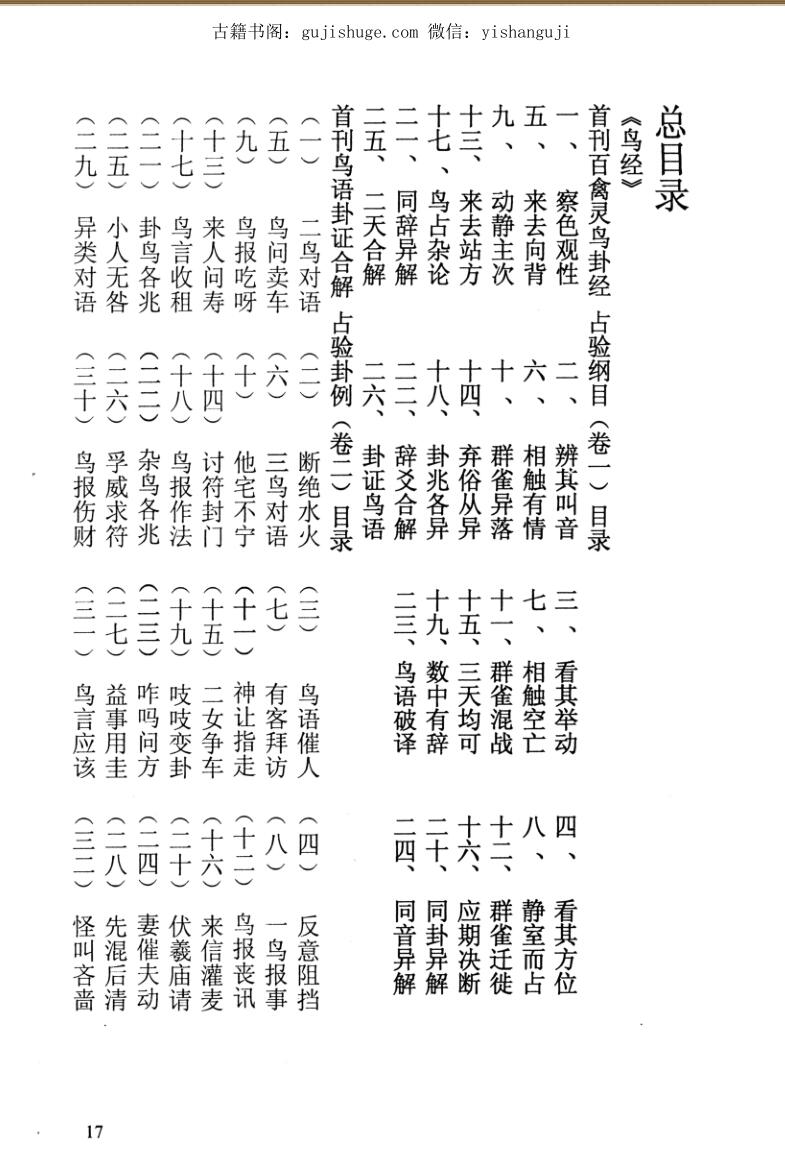 古籍书阁：gujishuge.com 微信：yishanguji
总目录
《鸟经》
首刊百禽灵鸟卦经 占验纲目（卷一）目录
一、 察色观性 二、 辨其叫音 三、 看其举动 四、 看其方位
五、 来去向背 六、 相触有情 七、 相触空亡 八、 静室而占
九、 动静主次 十、 群雀异落 十一、群雀混战 十二、群雀迁徙
十三、来去站方 十四、弃俗从异 十五、三天均可 十六、应期决断
十七、鸟占杂论 十八、卦兆各异 十九、数中有辞 二十、同卦异解
二一、同辞异解 二二、辞爻合解 二三、鸟语破译 二四、同音异解
二五、二天合解 二六、卦证鸟语
首刊鸟语卦证合解 占验卦例（卷二）目录
（一） 二鸟对语 （二） 断绝水火 （三） 鸟语催人 （四） 反意阻挡
（五） 鸟问卖车 （六） 三鸟对语 （七） 有客拜访 （八） 一鸟报事
（九） 鸟报吃呀 （十） 他宅不宁 （十一） 神让指走 （十二） 鸟报丧讯
（十三） 来人问寿 （十四） 讨符封门 （十五） 二女争车 （十六） 来信灌麦
（十七） 鸟言收租 （十八） 鸟报作法 （十九） 吱吱变卦 （二十） 伏羲庙请
（二一） 卦鸟各兆 （二二） 杂鸟各兆 （二三） 咋吗问方 （二四） 妻催夫动
（二五） 小人无咎 （二六） 孚威求符 （二七） 益事用圭 （二八） 先混后清
（二九） 异类对语 （三十） 鸟报伤财 （三一） 鸟言应该 （三二） 怪叫吝啬
17